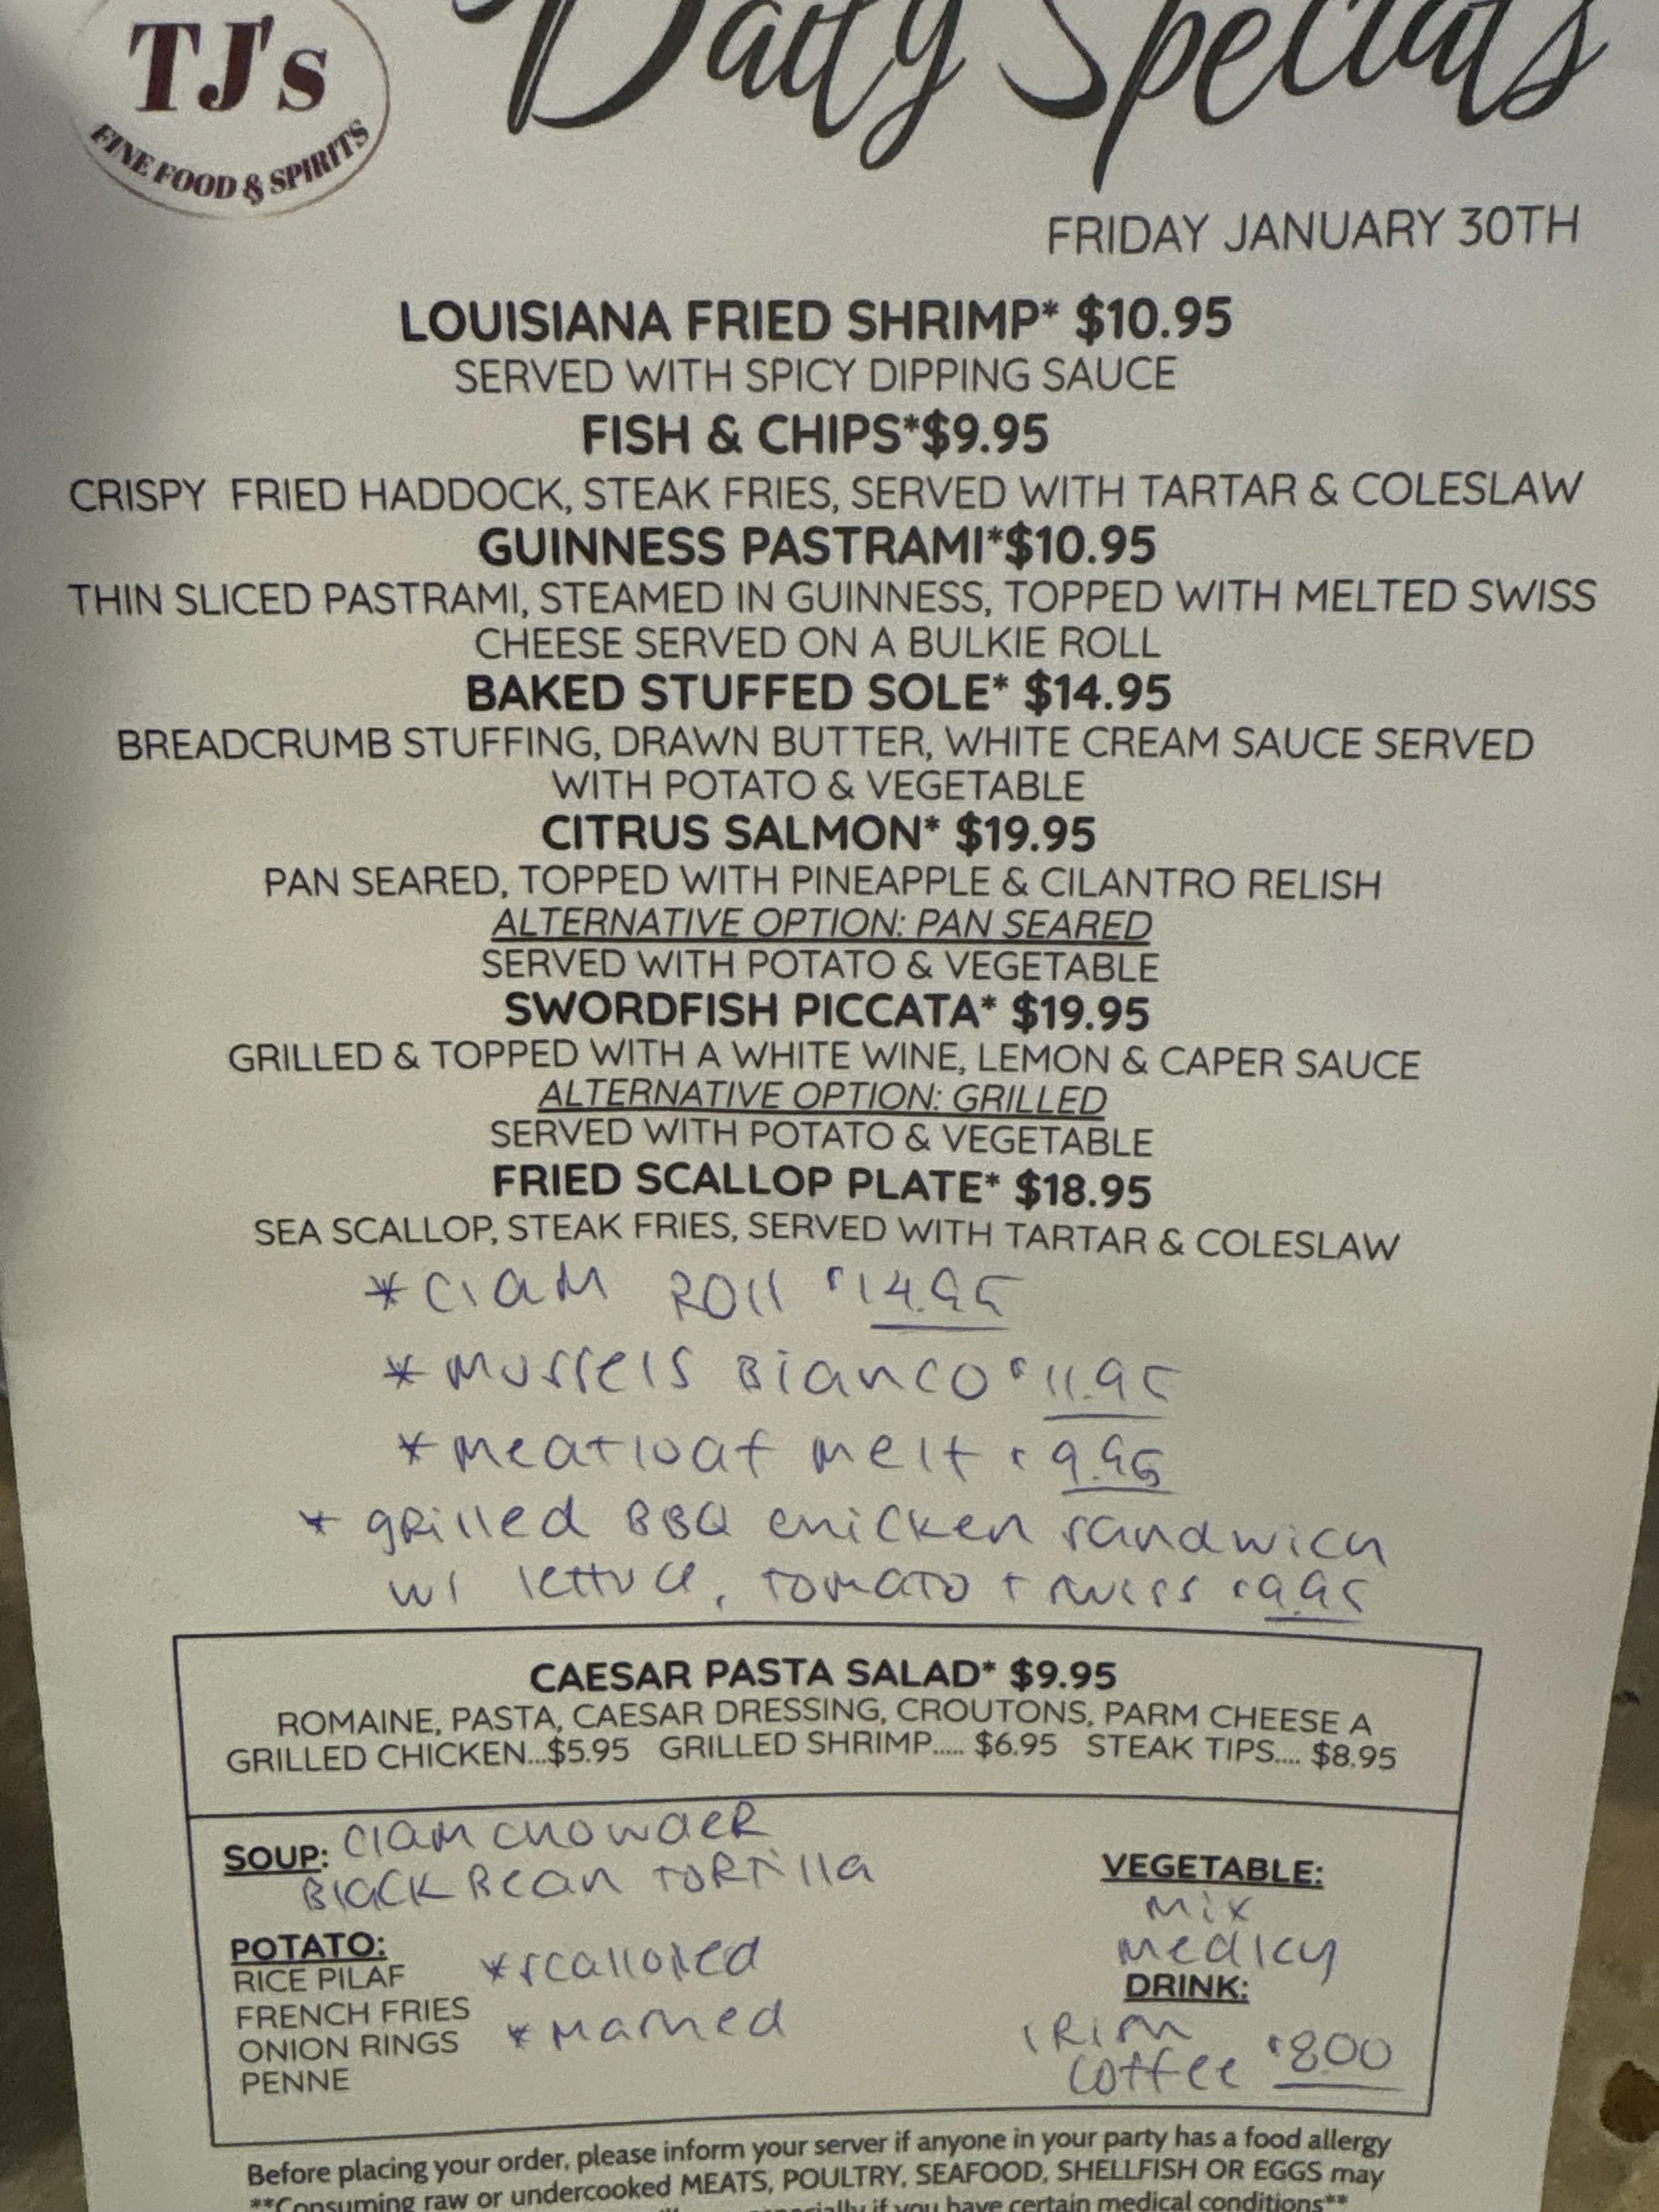 TJ's
FINE FOOD & SPIRITS
Daily Specials
FRIDAY JANUARY 30TH
LOUISIANA FRIED SHRIMP* $10.95
SERVED WITH SPICY DIPPING SAUCE
FISH & CHIPS*$9.95
CRISPY FRIED HADDOCK, STEAK FRIES, SERVED WITH TARTAR & COLESLAW
GUINNESS PASTRAMI*$10.95
THIN SLICED PASTRAMI, STEAMED IN GUINNESS, TOPPED WITH MELTED SWISS
CHEESE SERVED ON A BULKIE ROLL
BAKED STUFFED SOLE* $14.95
BREADCRUMB STUFFING, DRAWN BUTTER, WHITE CREAM SAUCE SERVED
WITH POTATO & VEGETABLE
CITRUS SALMON* $19.95
PAN SEARED, TOPPED WITH PINEAPPLE & CILANTRO RELISH
ALTERNATIVE OPTION: PAN SEARED
SERVED WITH POTATO & VEGETABLE
SWORDFISH PICCATA* $19.95
GRILLED & TOPPED WITH A WHITE WINE, LEMON & CAPER SAUCE
ALTERNATIVE OPTION: GRILLED
SERVED WITH POTATO & VEGETABLE
FRIED SCALLOP PLATE* $18.95
SEA SCALLOP, STEAK FRIES, SERVED WITH TARTAR & COLESLAW
*Clam Roll $14.95
*Mussels Bianco $11.95
*Meatloaf Melt $9.95
* grilled BBQ chicken sandwich
w/ lettuce, tomato + swiss $9.95
CAESAR PASTA SALAD* $9.95
ROMAINE, PASTA, CAESAR DRESSING, CROUTONS, PARM CHEESE A
GRILLED CHICKEN...$5.95 GRILLED SHRIMP..... $6.95 STEAK TIPS.... $8.95
SOUP: Clam chowder
Black Bean Tortilla
VEGETABLE:
Mix
Medley
POTATO:
RICE PILAF
FRENCH FRIES
ONION RINGS
PENNE
*scalloped
*Mashed
DRINK:
Irish
Coffee $8.00
Before placing your order, please inform your server if anyone in your party has a food allergy
**Consuming raw or undercooked MEATS, POULTRY, SEAFOOD, SHELLFISH OR EGGS may
if you have certain medical conditions**